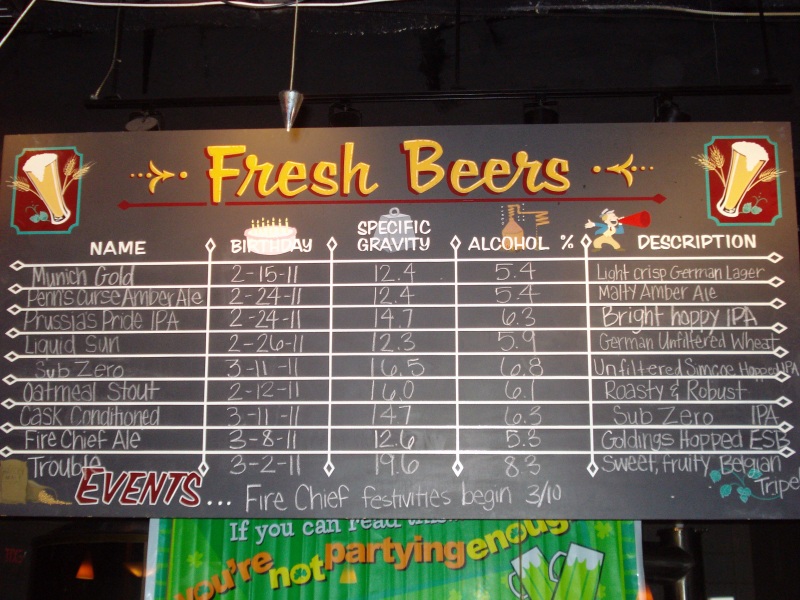 Fresh Beers
NAME BIRTHDAY SPECIFIC GRAVITY ALCOHOL % DESCRIPTION
Munich Gold 2-15-11 12.4 5.4 Light crisp German Lager
Penn's Curse Amber Ale 2-24-11 12.4 5.4 Malty Amber Ale
Prussia's Pride IPA 2-24-11 14.7 6.3 Bright hoppy IPA
Liquid Sun 2-26-11 12.3 5.9 German Unfiltered Wheat
Sub Zero 3-11-11 16.5 6.8 Unfiltered Simcoe Hopped IPA
Oatmeal Stout 2-12-11 16.0 6.1 Roasty & Robust
Cask Conditioned 3-11-11 147 6.3 Sub Zero IPA
Fire Chief Ale 3-8-11 12.6 5.3 Goldings Hopped ESB
Trouble 3-2-11 19.6 8.3 Sweet, fruity Belgian
Tripel
EVENTS... Fire Chief festivities begin 3/10
If you can read this
you're not partying enough